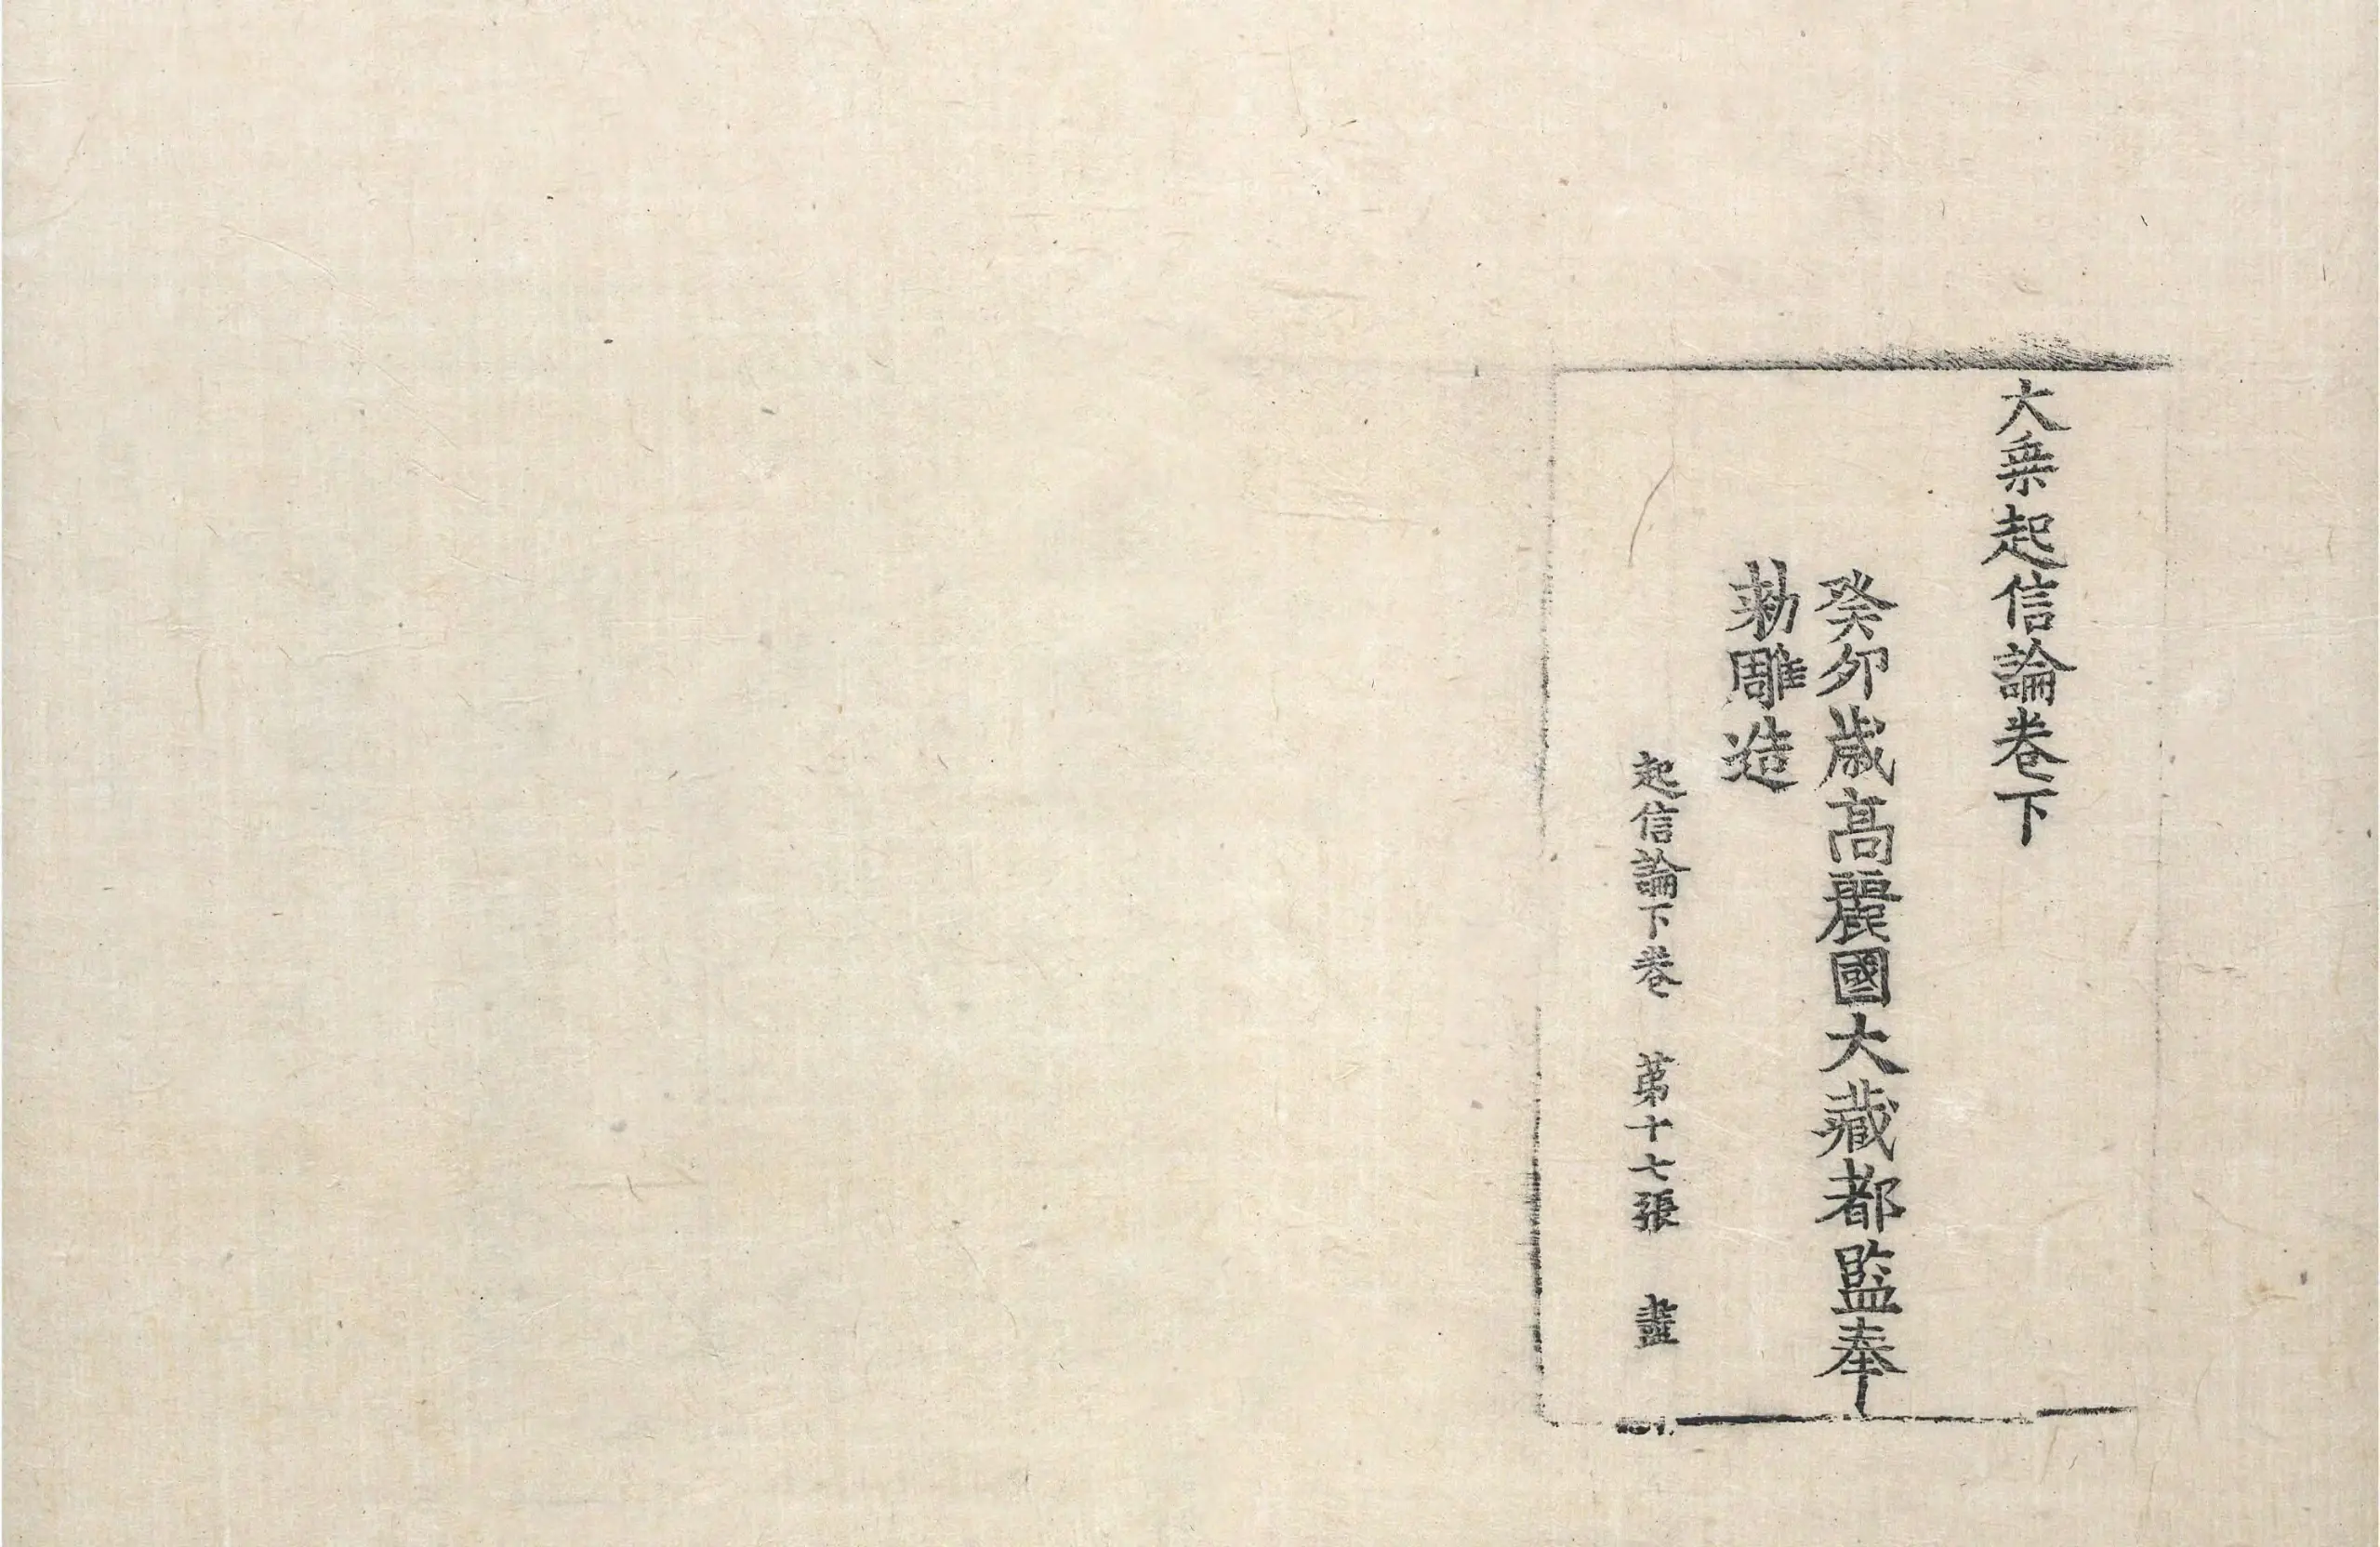 大乗起信論卷下
癸卯歲高麗國大藏都監奉
勅雕造
起信論下卷 第十七張 盡